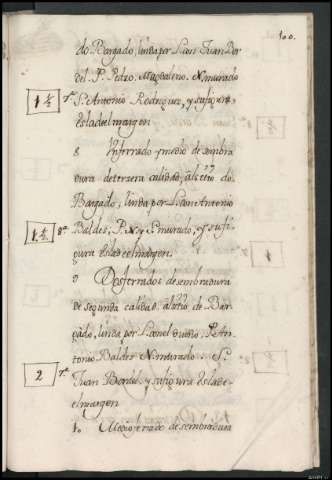 100.
do Bargado, linda por L. con Juan Dor
del P. Pedro, Magdaleno, N. murado
S. Antonio Rodriguez, y su figura,
es la del margen
1½ 7ª
8 Un ferrado y medio de sembra
dura de tersera calidad, al sitio do
Bargado, linda por L. con Antonio
Baldes, P. N. y S. murado, y su fi
gura es la de el margen.
1½ 8ª
9 Dos ferrados de sembradura
de segunda calidad al sitio de Bar
gado, linda por L. con el P. An
tonio Baldes N. murado S.
Juan y su figura es la de
el margen
2
10 Medio ferrado de sembradura